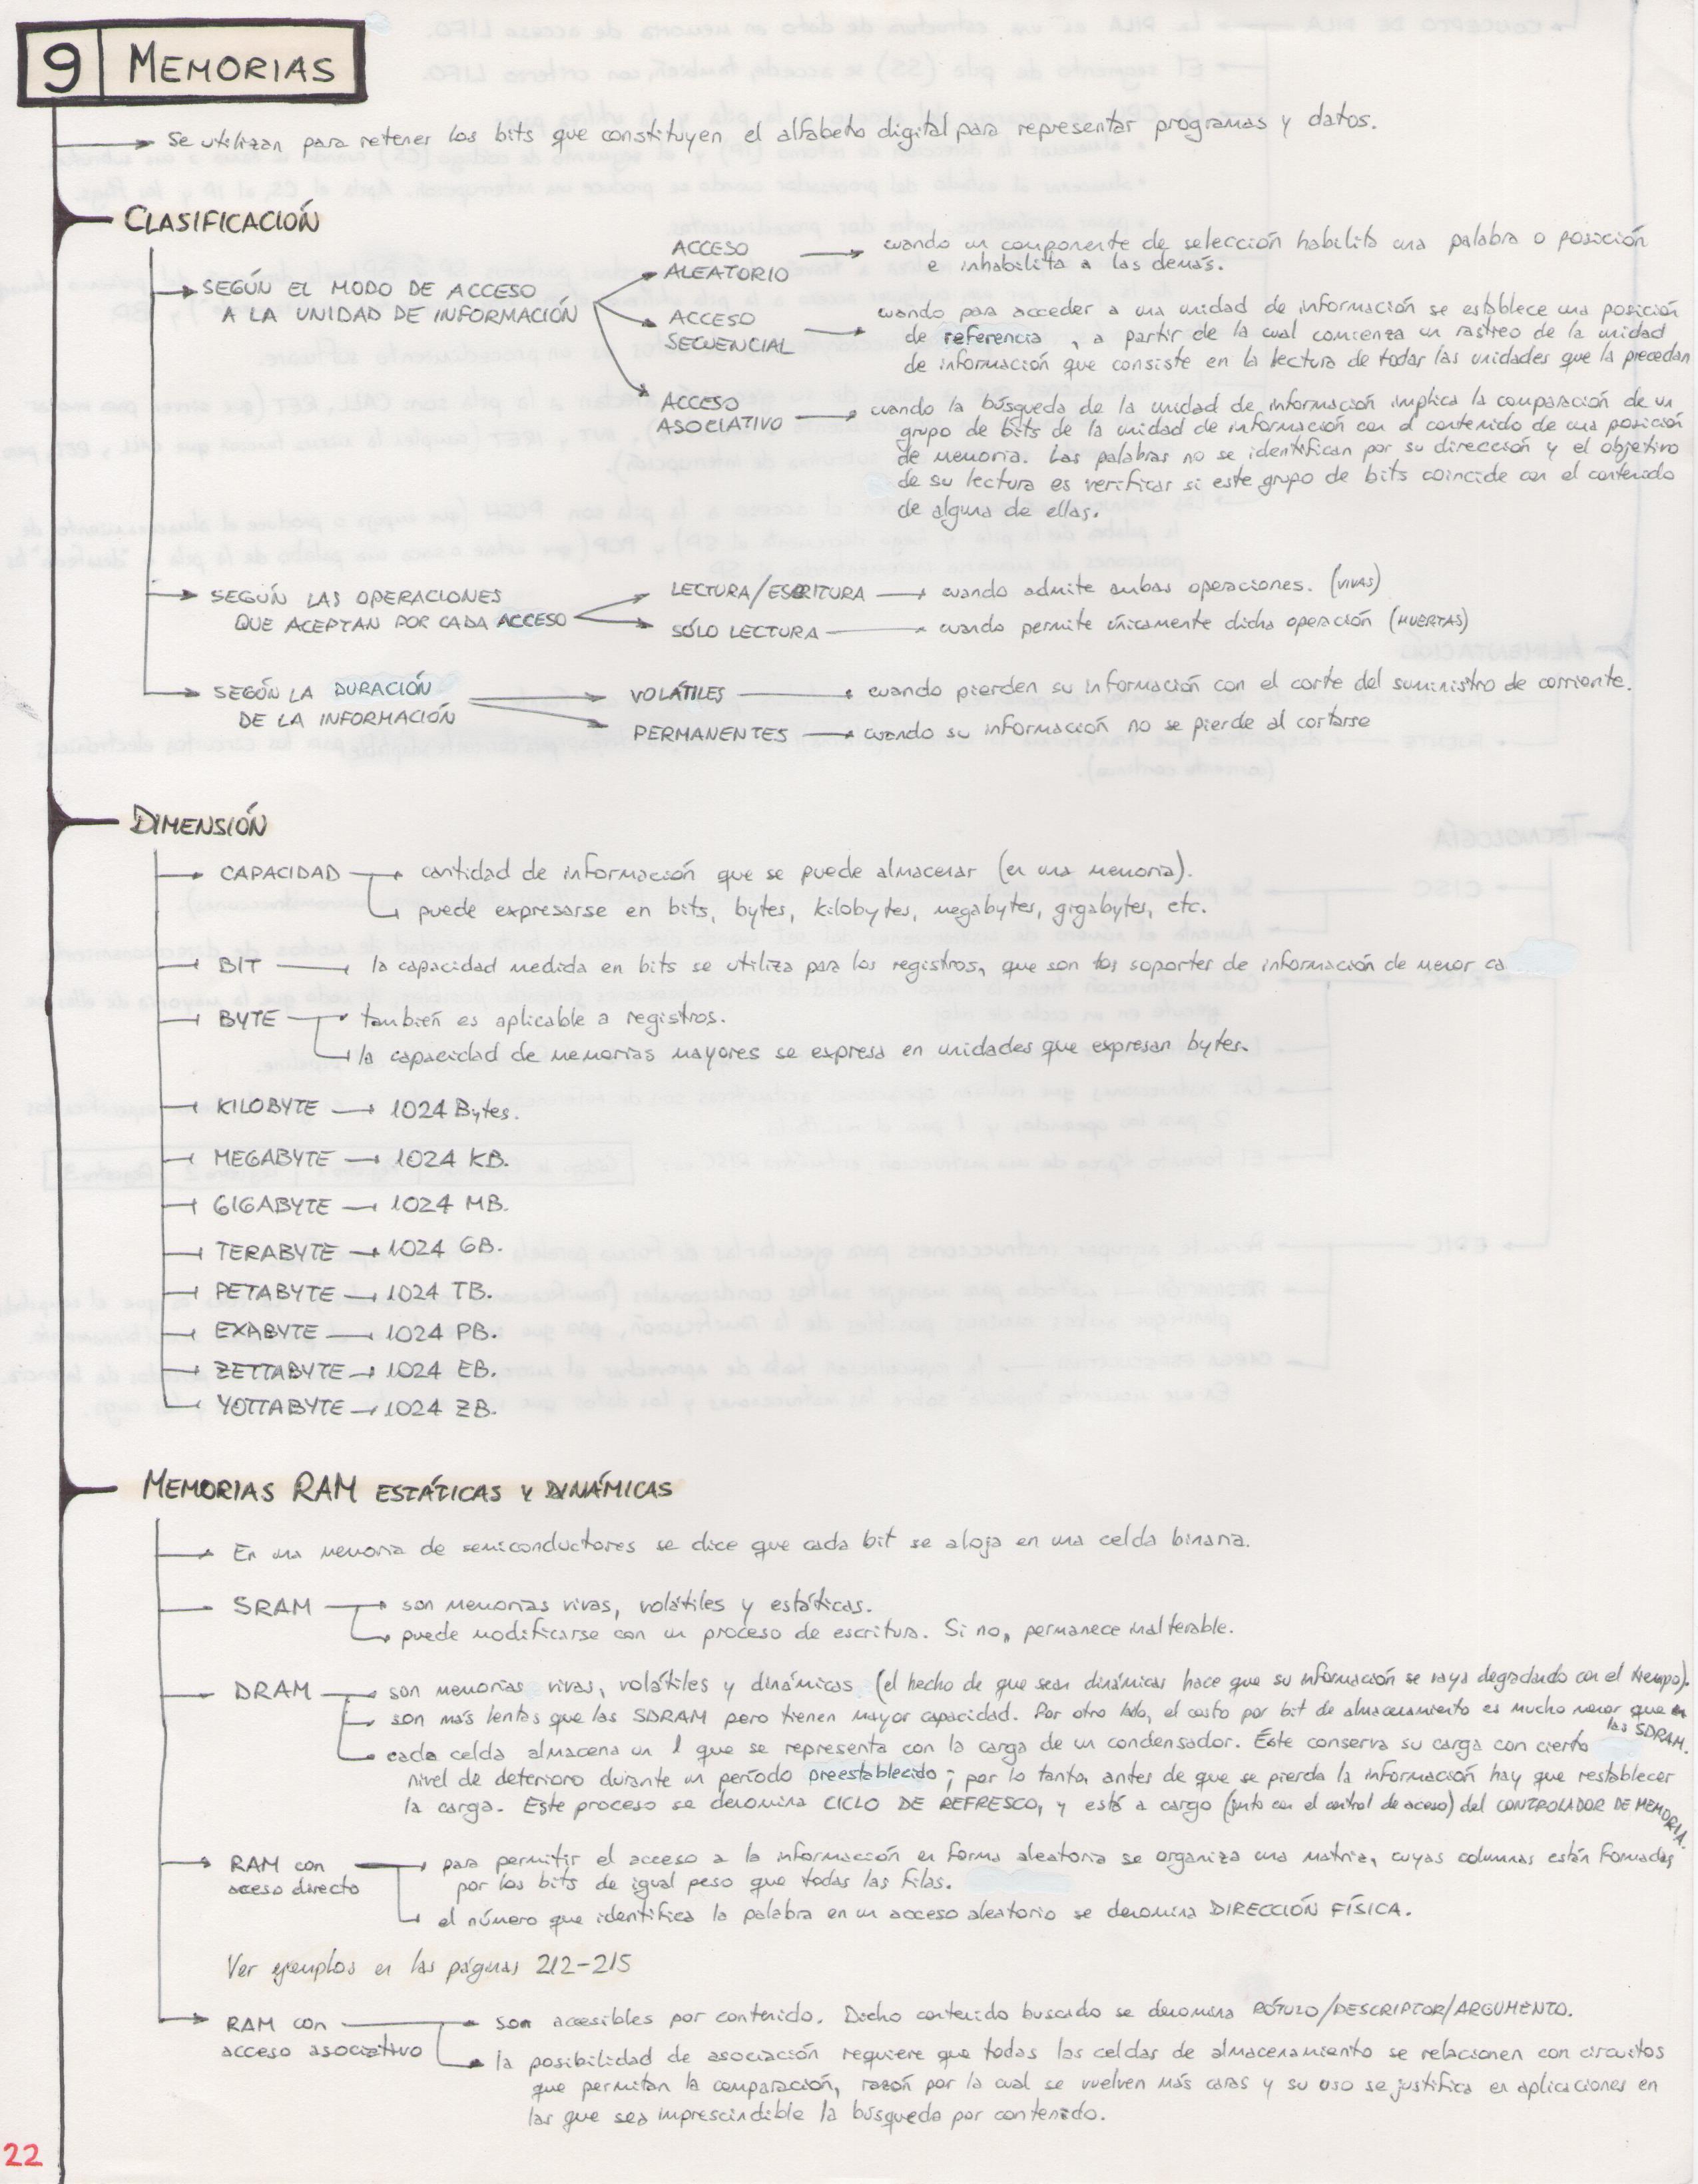 9 MEMORIAS
Se utilizan para retener los bits que constituyen el alfabeto digital para representar programas y datos.
CLASIFICACIÓN
SEGÚN EL MODO DE ACCESO
A LA UNIDAD DE INFORMACIÓN
ACCESO
ALEATORIO
cuando un componente de selección habilita una palabra o posición
e inhabilita a las demás.
ACCESO
SECUENCIAL
cuando para acceder a una unidad de información se establece una posición
de referencia, a partir de la cual comienza un rastreo de la unidad
de información que consiste en la lectura de todas las unidades que la precedan
ACCESO
ASOCIATIVO
cuando la búsqueda de la unidad de información implica la comparación de un
grupo de bits de la unidad de información con el contenido de una posición
de memoria. Las palabras no se identifican por su dirección y el objetivo
de su lectura es verificar si este grupo de bits coincide con el contenido
de alguna de ellas.
SEGÚN LAS OPERACIONES
QUE ACEPTAN POR CADA ACCESO
LECTURA/ESCRITURA
cuando admite ambas operaciones. (VIVAS)
SÓLO LECTURA
cuando permite únicamente dicha operación (MUERTAS)
SEGÚN LA DURACIÓN
DE LA INFORMACIÓN
VOLÁTILES
cuando pierden su información con el corte del suministro de corriente.
PERMANENTES
cuando su información no se pierde al cortarse
DIMENSIÓN
CAPACIDAD
cantidad de información que se puede almacenar (en una memoria).
puede expresarse en bits, bytes, kilobytes, megabytes, gigabytes, etc.
BIT
la capacidad medida en bits se utiliza para los registros, que son los soportes de información de menor ca
BYTE
también es aplicable a registros.
la capacidad de memorias mayores se expresa en unidades que expresan bytes.
KILOBYTE 1024 Bytes.
MEGABYTE 1024 KB.
GIGABYTE 1024 MB.
TERABYTE 1024 GB.
PETABYTE 1024 TB.
EXABYTE 1024 PB.
ZETTABYTE 1024 EB.
YOTTABYTE 1024 ZB.
MEMORIAS RAM ESTÁTICAS Y DINÁMICAS
En una memoria de semiconductores se dice que cada bit se aloja en una celda binaria.
SRAM
son memorias vivas, volátiles y estáticas.
puede modificarse con un proceso de escritura. Si no, permanece inalterable.
DRAM
son memorias vivas, volátiles y dinámicas (el hecho de que sean dinámicas hace que su información se vaya degradando con el tiempo).
son más lentas que las SDRAM pero tienen mayor capacidad. Por otro lado, el costo por bit de almacenamiento es mucho menor que en
las SDRAM.
cada celda almacena un 1 que se representa con la carga de un condensador. Éste conserva su carga con cierto
nivel de deterioro durante un período preestablecido; por lo tanto, antes de que se pierda la información hay que restablecer
la carga. Este proceso se denomina CICLO DE REFRESCO, y está a cargo (junto con el control de acceso) del CONTROLADOR DE MEMORIA.
RAM con
acceso directo
para permitir el acceso a la información en forma aleatoria se organiza una matriz, cuyas columnas están formadas
por los bits de igual peso que todas las filas.
el número que identifica la palabra en un acceso aleatorio se denomina DIRECCIÓN FÍSICA.
Ver ejemplos en las páginas 212-215
RAM con
acceso asociativo
son accesibles por contenido. Dicho contenido buscado se denomina RÓTULO/DESCRIPTOR/ARGUMENTO.
la posibilidad de asociación requiere que todas las celdas de almacenamiento se relacionen con circuitos
que permitan la comparación, razón por la cual se vuelven más caras y su uso se justifica en aplicaciones en
las que sea imprescindible la búsqueda por contenido.
22